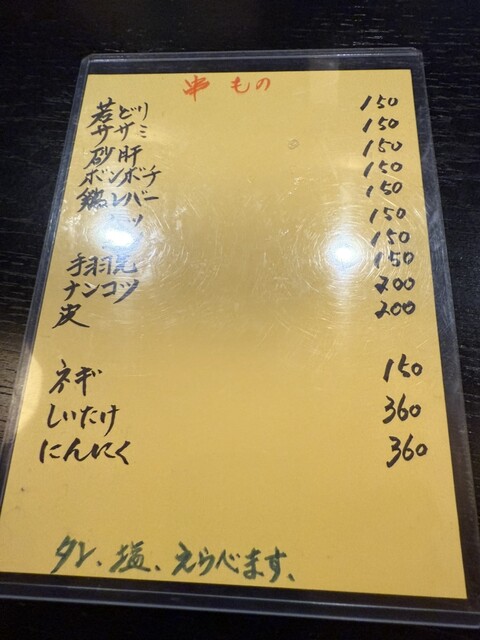 串もの
若どり 150
ササミ 150
砂肝 150
ボンボチ 150
鶏レバー 150
150
150
手羽先 150
ナンコツ 200
皮 200
ネギ 150
しいたけ 360
にんにく 360
タレ、塩、えらべます。